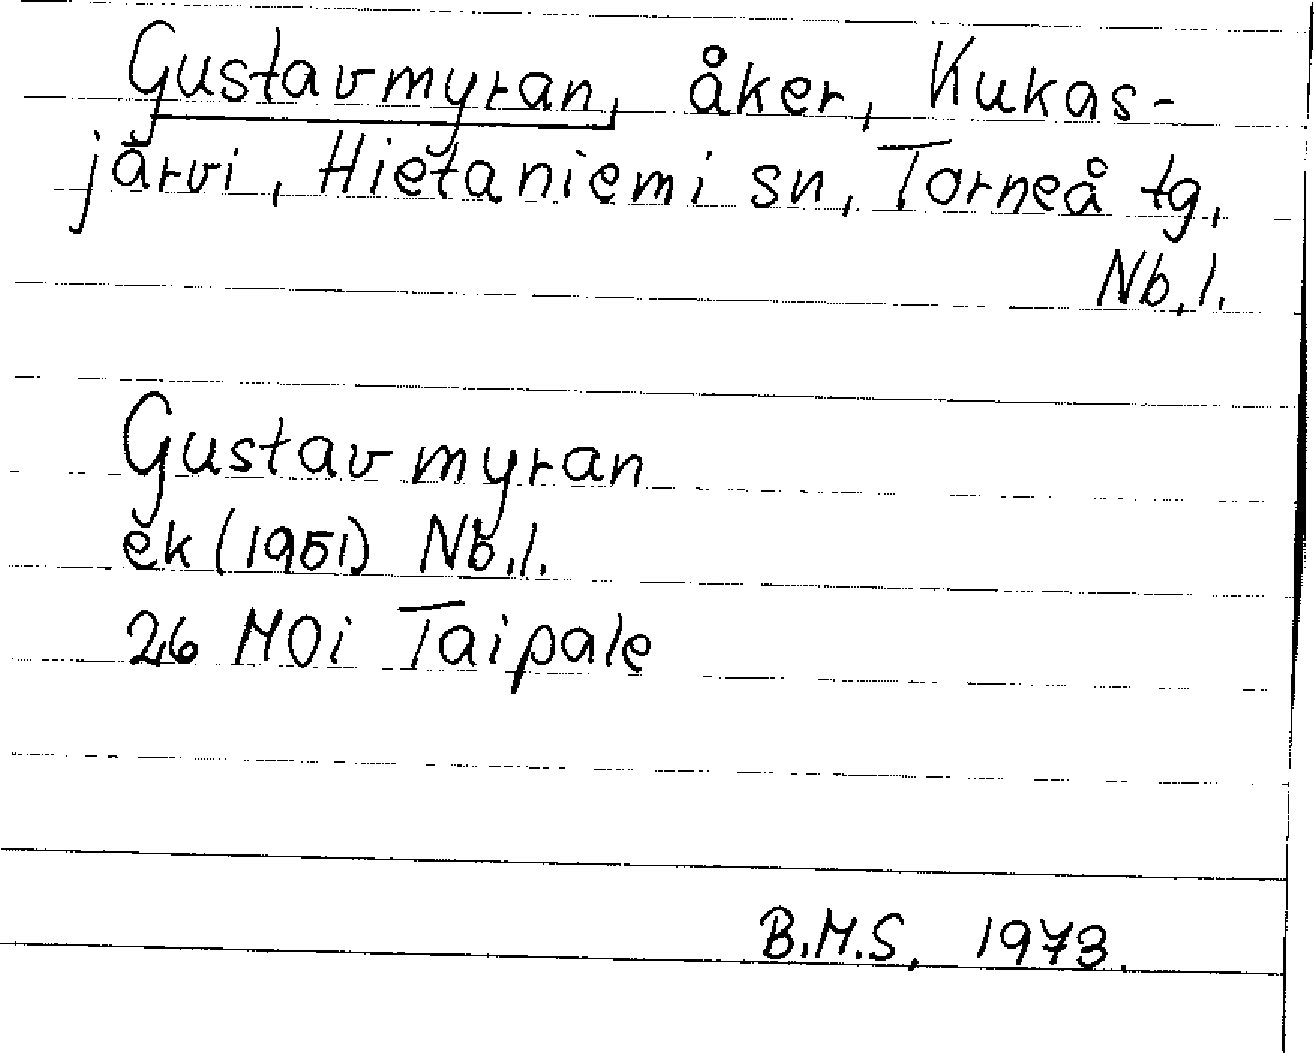 Gustavmyran, åker, Kukas-
järvi, Hietaniemi sn, Torneå tg,
Nb.l.
Gustavmyran
ek (1951) Nb.l.
26 M0i Taipale
B.M.S. 1973.